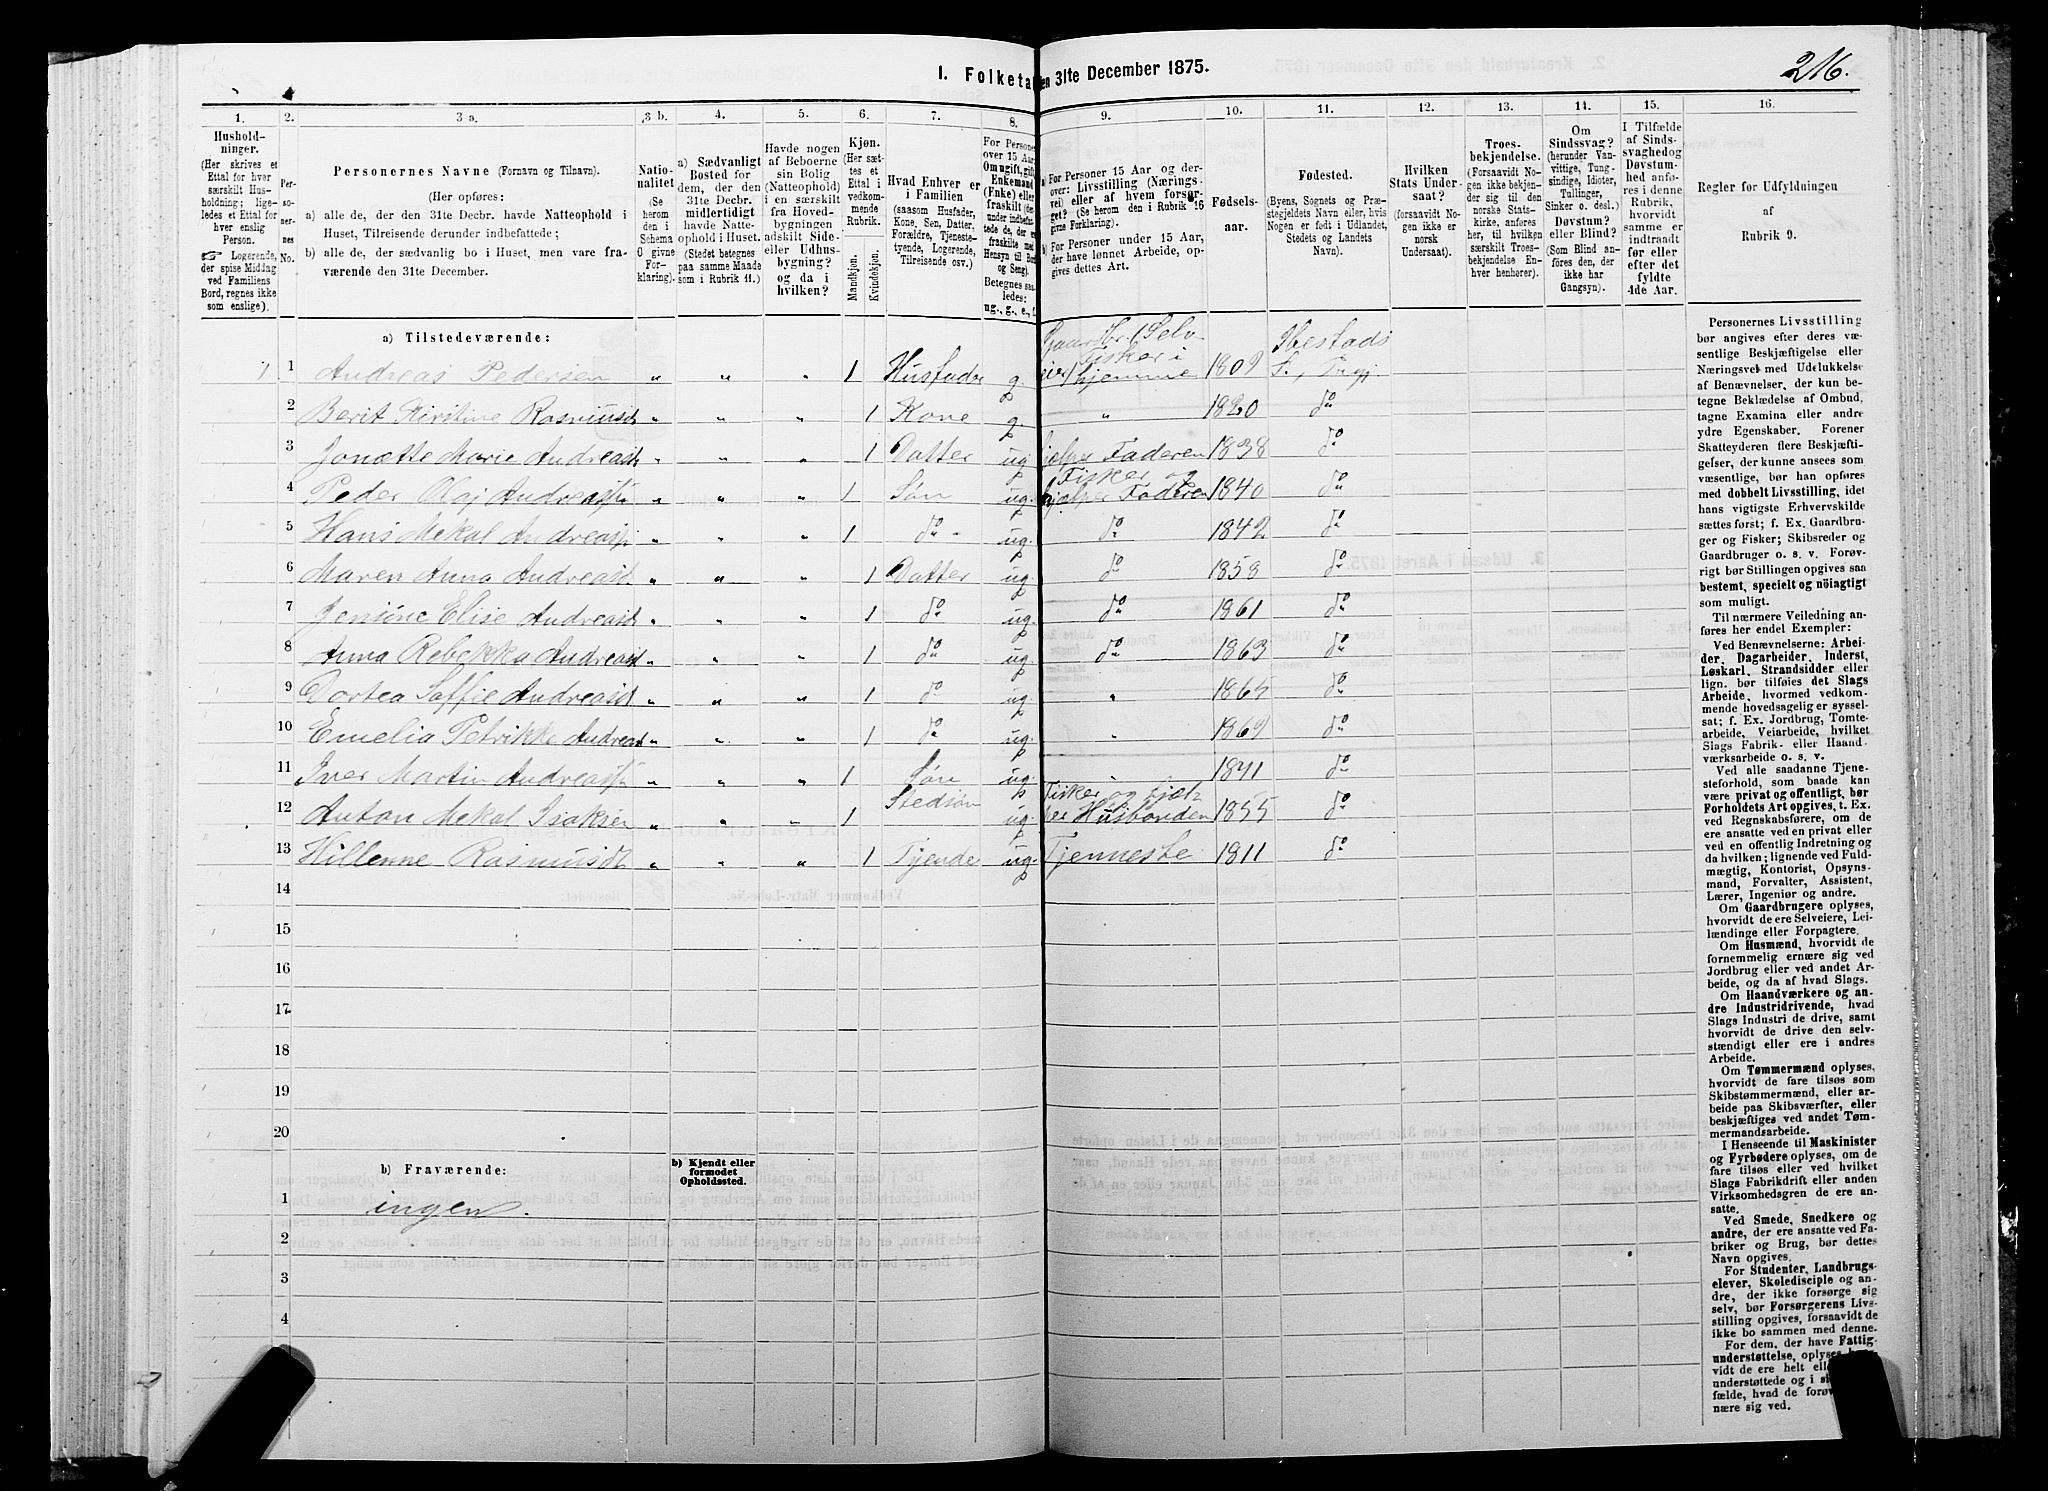 216.
I. Folketa en 31te December 1875.
1. 2. 3 a. 3 b. 4. 5. 6. 7. 8. 9. 10. 11. 12. 13. 14. 15. 16.
Hushold-
ninger.
(Her skrives et
Ettal for hver
særskilt Hus-
holdning; lige-
ledes et Ettal for
hver enslig
Person.
☞ Logerende,
der spise Middag
ved Familiens
Bord, regnes ikke
som enslige).
Per-
so-
ner-
nes
No.
Personernes Navne (Fornavn og Tilnavn).
(Her opføres:
a) alle de, der den 31te Decbr. havde Natteophold i
Huset, Tilreisende derunder indbefattede;
b) alle de, der sædvanlig bo i Huset, men vare fra-
værende den 31te December.
Natio-
nalitet
(Se
herom
den i
Schema
O givne
For-
klaring).
a) Sædvanligt
Bosted for
dem, der den
31te Decbr.
midlertidigt
havde Natte-
ophold i Huset.
(Stedet betegnes
paa samme Maade
som i Rubrik 11.)
Havde nogen
af Beboerne
sin Bolig
(Natteophold)
i en særskilt
fra Hoved-
bygningen
adskilt Side-
eller Udhus-
bygning?
og da i
hvilken?
Kjøn.
(Her sæt-
tes et
Ettal i
vedkom-
mende
Rubrik.
Mandkjøn.
Kvindekjøn.
Hvad Enhver er
i Familien
(saasom Husfader,
Kone, Søn, Datter,
Forældre, Tjeneste-
tyende, Logerende,
Tilreisende osv.)
For Personer
over 15 Aar:
Om ugift, gift,
Enkemand
(Enke) eller
fraskilt
Hensyn til Bord
og Seng).
Betegnes saa-
ledes:
ug., g., e.,
a) For Personer 15 Aar og der-
over: Livsstilling (Nærings-
vei) eller af hvem forsør-
get? (Se herom den i Rubrik 16
givne Forklaring).
b) For Personer under 15 Aar,
der have lønnet Arbeide, op-
gives dettes Art.
Fødsels-
aar.
Fødested.
(Byens, Sognets og Præ-
stegjeldets Navn eller, hvis
Nogen er født i Udlandet,
Stedets og Landets
Navn).
Hvilken
Stats Under-
saat?
(forsaavidt No-
gen ikke er
norsk
Undersaat).
Troes-
bekjendelse.
(Forsaavidt No-
gen ikke bekjen-
der sig til den
norske Stats-
kirke, anføres
her, til hvilken
særskilt Troes-
bekjendelse En-
hver henhører).
Om
Sindssvag?
(herunder Van-
vittige, Tung-
sindige, Idioter,
Tullinger,
Sinker o. desl.)
Døvstum?
eller Blind?
(Som Blind an-
føres den, der
ikke har
Gangsyn).
I Tilfælde
af Sinds-
svaghed og
Døvstum-
hed anfø-
res i denne
Rubrik,
hvorvidt
samme er
indtraadt
før eller
efter det
fyldte
4de Aar.
Regler for Udfyldningen
af
Rubrik 9.
a) Tilstedeværende:
1 1 Andreas Pedersen „ „ „ 1 Husfader g. Gaardbr. (Selveier) Fisker i hjemme 1809 Ibestads S., Prgj.
2 Berit Kirstine Rasmusdt „ „ „ 1 Kone g. „ 1820 do
3 Jonætte Marie Andreasdt „ „ „ 1 Datter ug hjelper Faderen 1838 do
4 Peder Olaj Andreass „ „ „ 1 Søn ug. Fisker og hjelper Faderen 1840 do
5 Hans Mekal Andreass „ „ „ 1 do ug. do 1842 do
6 Maren Anna Andreasd „ „ „ 1 Datter ug. do 1858 do
7 Jensine Elise Andreasdt „ „ „ 1 do ug. do 1861 do
8 Anna Rebekka Andreasd „ „ „ 1 do ug. do 1863 do
9 Dortea Soffie Andreasd „ „ „ 1 do ug „ do
10 Emelia Petrikke Andreasd „ „ „ 1 do ug. „ 1869 do
11 Iver Martin Andreass „ „ „ 1 Søn ug. „ do
12 Anton Mekal Isaksen „ „ „ 1 Stedsøn ug. Fisker og hjelper Husbonden 1855 do
13 Hillenne Rasmusdt „ „ „ 1 Tjende ug. Tjenneste 1811 do
14
15
16
17
18
19
20
b) Fraværende:
b) Kjendt eller
formodet
Opholdssted.
1 ingen.
2
3
4
Personernes Livsstilling
bør angives efter deres væ-
sentlige Beskjæftigelse eller
Næringsvei med Udelukkelse
af Benævnelser, der kun be-
tegne Beklædelse af Ombud,
tagne Examina eller andre
ydre Egenskaber. Forener
Skatteyderen flere Beskjæfti-
gelser, der kunne ansees som
væsentlige, bør han opføres
med dobbelt Livsstilling, idet
hans vigtigste Erhvervskilde
sættes først; f. Ex. Gaardbru-
ger og Fisker; Skibsreder og
Gaardbruger o. s. v. Forøv-
rigt bør Stillingen opgives saa
bestemt, specielt og nöiagtigt
som muligt.
Til nærmere Veiledning an-
føres her endel Exempler:
Ved Benævnelserne: Arbei-
der, Dagarbeider, Inderst,
Løskarl, Strandsidder eller
lign. bør tilføies det Slags
Arbeide, hvormed vedkom-
mende hovedsagelig er syssel-
sat; f. Ex. Jordbrug, Tomte-
arbeide, Veiarbeide, hvilket
Slags Fabrik- eller Haand-
værksarbeide o. s. v.
Ved alle saadanne Tjene-
steforhold, som baade kan
være privat og offentligt, bør
Forholdets Art opgives, t. Ex.
ved Regnskabsførere, om de
ere ansatte ved en privat eller
ved en offentlig Indretning og
da hvilken; lignende ved Fuld-
mægtig, Kontorist, Opsyns-
mand, Forvalter, Assistent,
Lærer, Ingeniør og andre.
Om Gaardbrugere oplyses,
hvorvidt de ere Selveiere, Lei-
lændinge eller Forpagtere.
Om Husmænd, hvorvidt de
fornemmelig ernære sig ved
Jordbrug eller ved andet Ar-
beide, og da af hvad Slags.
Om Haandværkere og an-
dre Industridrivende, hvad
Slags Industri de drive, samt
hvorvidt de drive den selv-
stændigt eller ere i andres
Arbeide.
Om Tømmermænd oplyses,
hvorvidt de fare tilsøs som
Skibstømmermænd, eller ar-
beide paa Skibsværfter, eller
beskjæftiges ved andet Tøm-
mermandsarbeide.
I Henseende til Maskinister
og Fyrbødere oplyses, om de
fare tilsøs eller ved hvilket
Slags Fabrikdrift eller anden
Virksomhedsgren de ere an-
satte.
Ved Smede, Snedkere og
andre, der ere ansatte ved Fa-
briker og Brug, bør dettes
Navn opgives.
For Studenter, Landbrugs-
elever, Skoledisciple og an-
dre, der ikke forsørge sig
selv, bør Forsørgerens Livs-
stilling opgives, forsaavidt de
ikke bo sammen med denne.
For dem, der have Fattig-
understøttelse, oplyses
vidt de ere helt
understøttede og i
fælde, hvad de
nære sig ved.